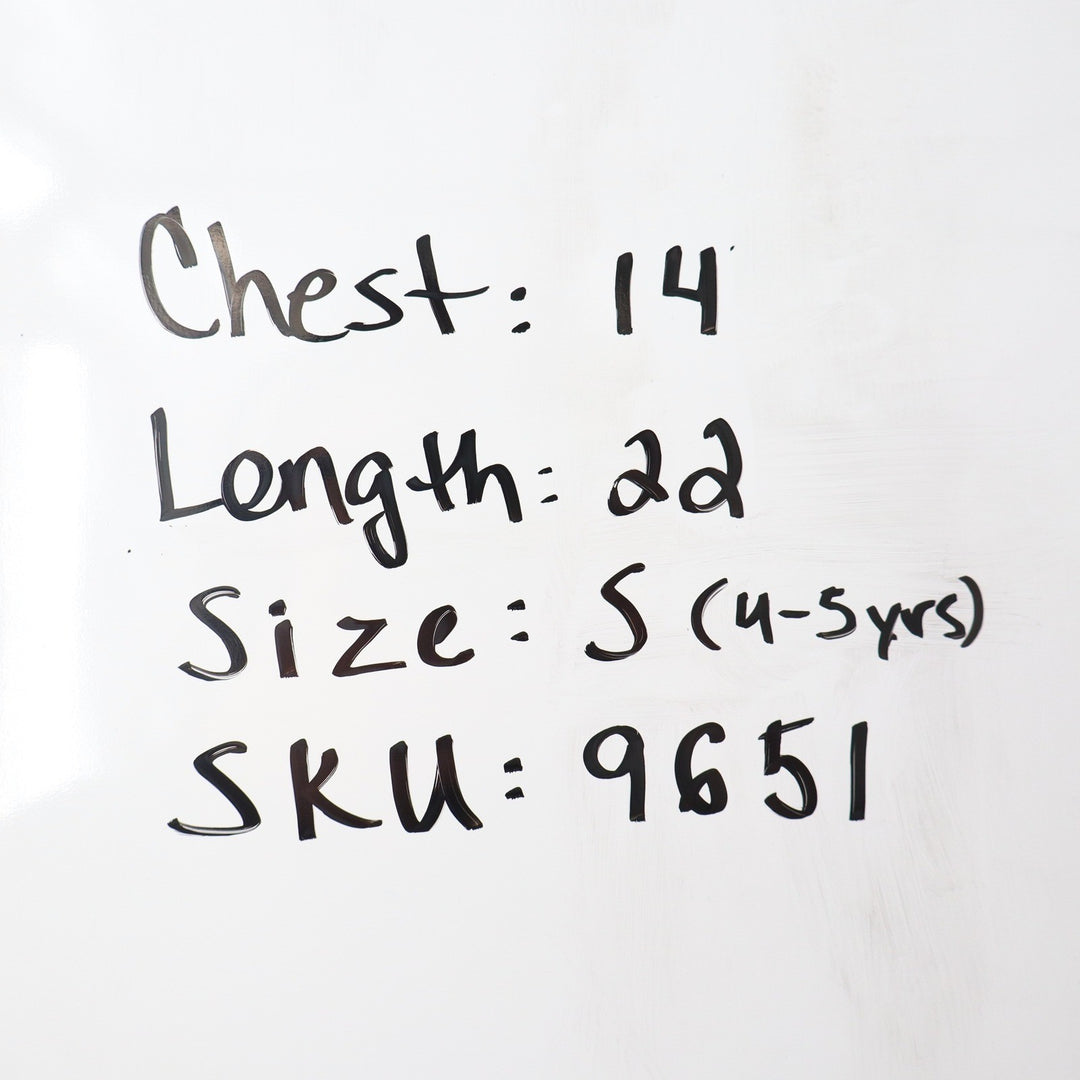 Chest: 14
Length: 22
Size: S (4-5yrs)
SKU: 9651